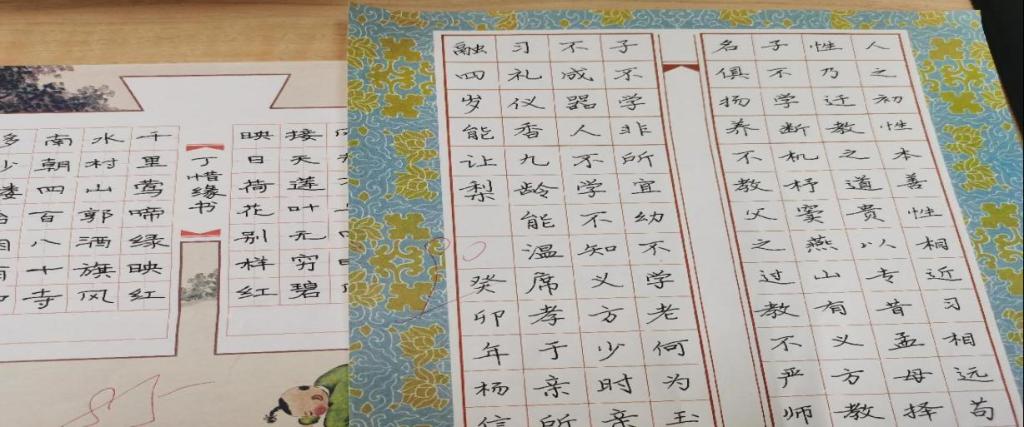 人之初性本善性相近习相远苟
性乃迁教之道贵以专昔孟母择
子不学断机杼窦燕山有义方教
名俱扬养不教父之过教不严师
子不学非所宜幼不学老何为玉
不成器人不学不知义方少时亲
习礼仪香九龄能温席孝于亲所
融四岁能让梨
癸卯年杨信
接天莲叶无穷碧
映日荷花别样红
丁惜缘书
千里莺啼绿映红
水村山郭酒旗风
南朝四百八十寺
多少楼